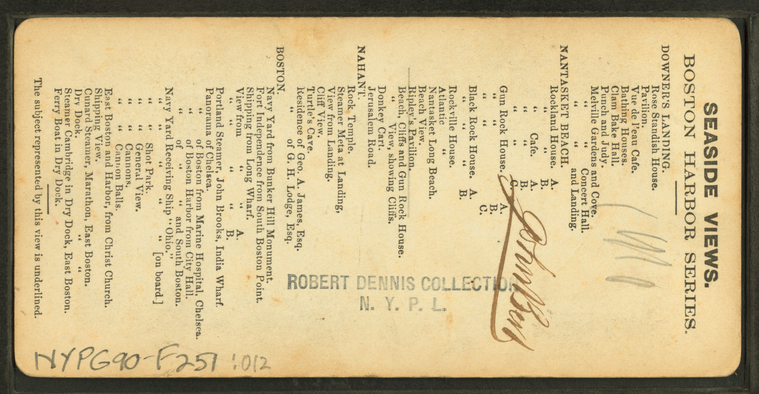 SEASIDE VIEWS.
BOSTON HARBOR SERIES.
DOWNER'S LANDING.
Rose Standish House.
Pavilion.
Vue de l'eau Cafe.
Bathing Houses.
Clam Bake Hall.
Punch and Judy.
Melville Gardens and Cove.
" " Concert Hall.
" " and Landing.
NANTASKET BEACH.
Rockland House. A.
" " B.
" Cafe. A.
" " B.
" " C.
Gun Rock House. A.
" " B.
" " C.
Black Rock House. A.
" " B.
Rockville House.
Atlantic "
Nantasket Long Beach.
Beach View.
Ripley's Pavilion.
Beach, Cliffs and Gun Rock House.
" View, showing Cliffs.
Donkey Cart.
Jerusalem Road.
NAHANT.
Rock Temple.
Steamer Meta at Landing.
View from Landing.
Cliff View.
Turtle's Cave.
Residence of Geo. A. James, Esq.
" of G. H. Lodge, Esq.
BOSTON.
Navy Yard from Bunker Hill Monument.
Fort Independence from South Boston Point.
Shipping from Long Wharf.
View from " " A.
" " " B.
Portland Steamer, John Brooks, India Wharf.
Panorama of Chelsea.
" of Boston from Marine Hospital, Chelsea.
" of Boston Harbor from City Hall.
" of " " and South Boston.
Navy Yard Receiving Ship "Ohio."
" " " " [on board.]
" " Shot Park.
" " General View.
" " Cannons.
" " Cannon Balls.
East Boston and Harbor, from Christ Church.
Shipping View.
Cunard Steamer, Marathon, East Boston.
Dry Dock. " "
Steamer Cambridge in Dry Dock, East Boston.
Ferry Boat in Dry Dock.
The subject represented by this view is underlined.
ROBERT DENNIS COLLECTION
N. Y. P. L.
NYPG90-F251 :012